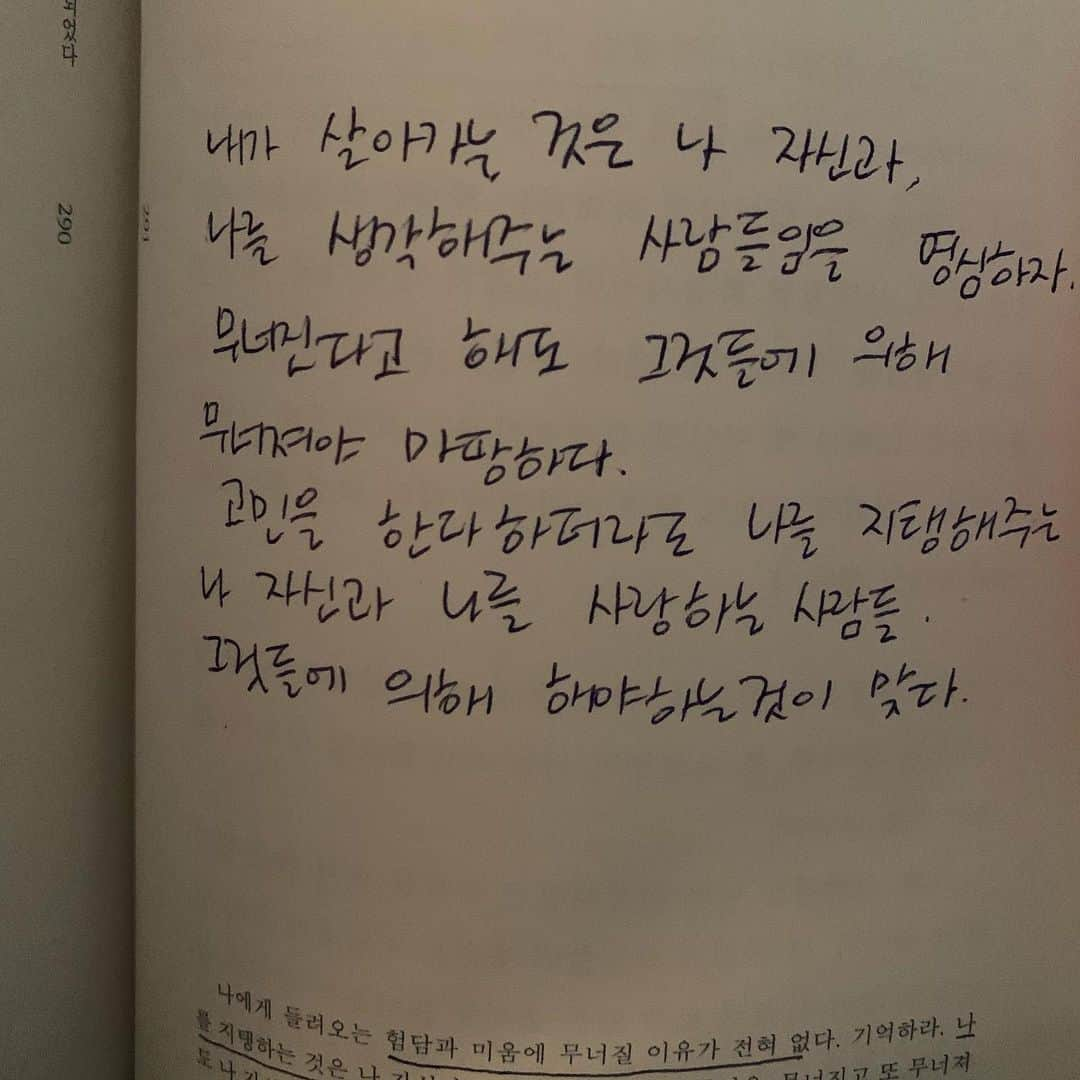 되었다
290
291
내가 살아가는 것은 나 자신과,
나를 생각해주는 사람들임을 명심하자.
무너진다고 해도 그것들에 의해
무너져야 마땅하다.
고민을 한다하더라도 나를 지탱해주는
나 자신과 나를 사랑하는 사람들.
그것들에 의해 해야하는것이 맞다.
나에게 들려오는 험담과 미움에 무너질 이유가 전혀 없다. 기억하라. 나
를 지탱하는 것은 나
무너지고 또 무너져